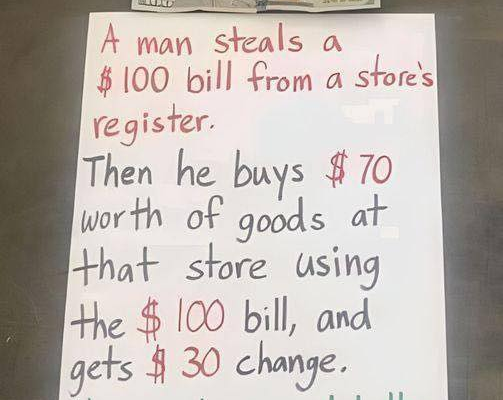 A man steals a
$100 bill from a store's
register.
Then he buys $70
worth of goods at
that store using
the $100 bill, and
gets $30 change.